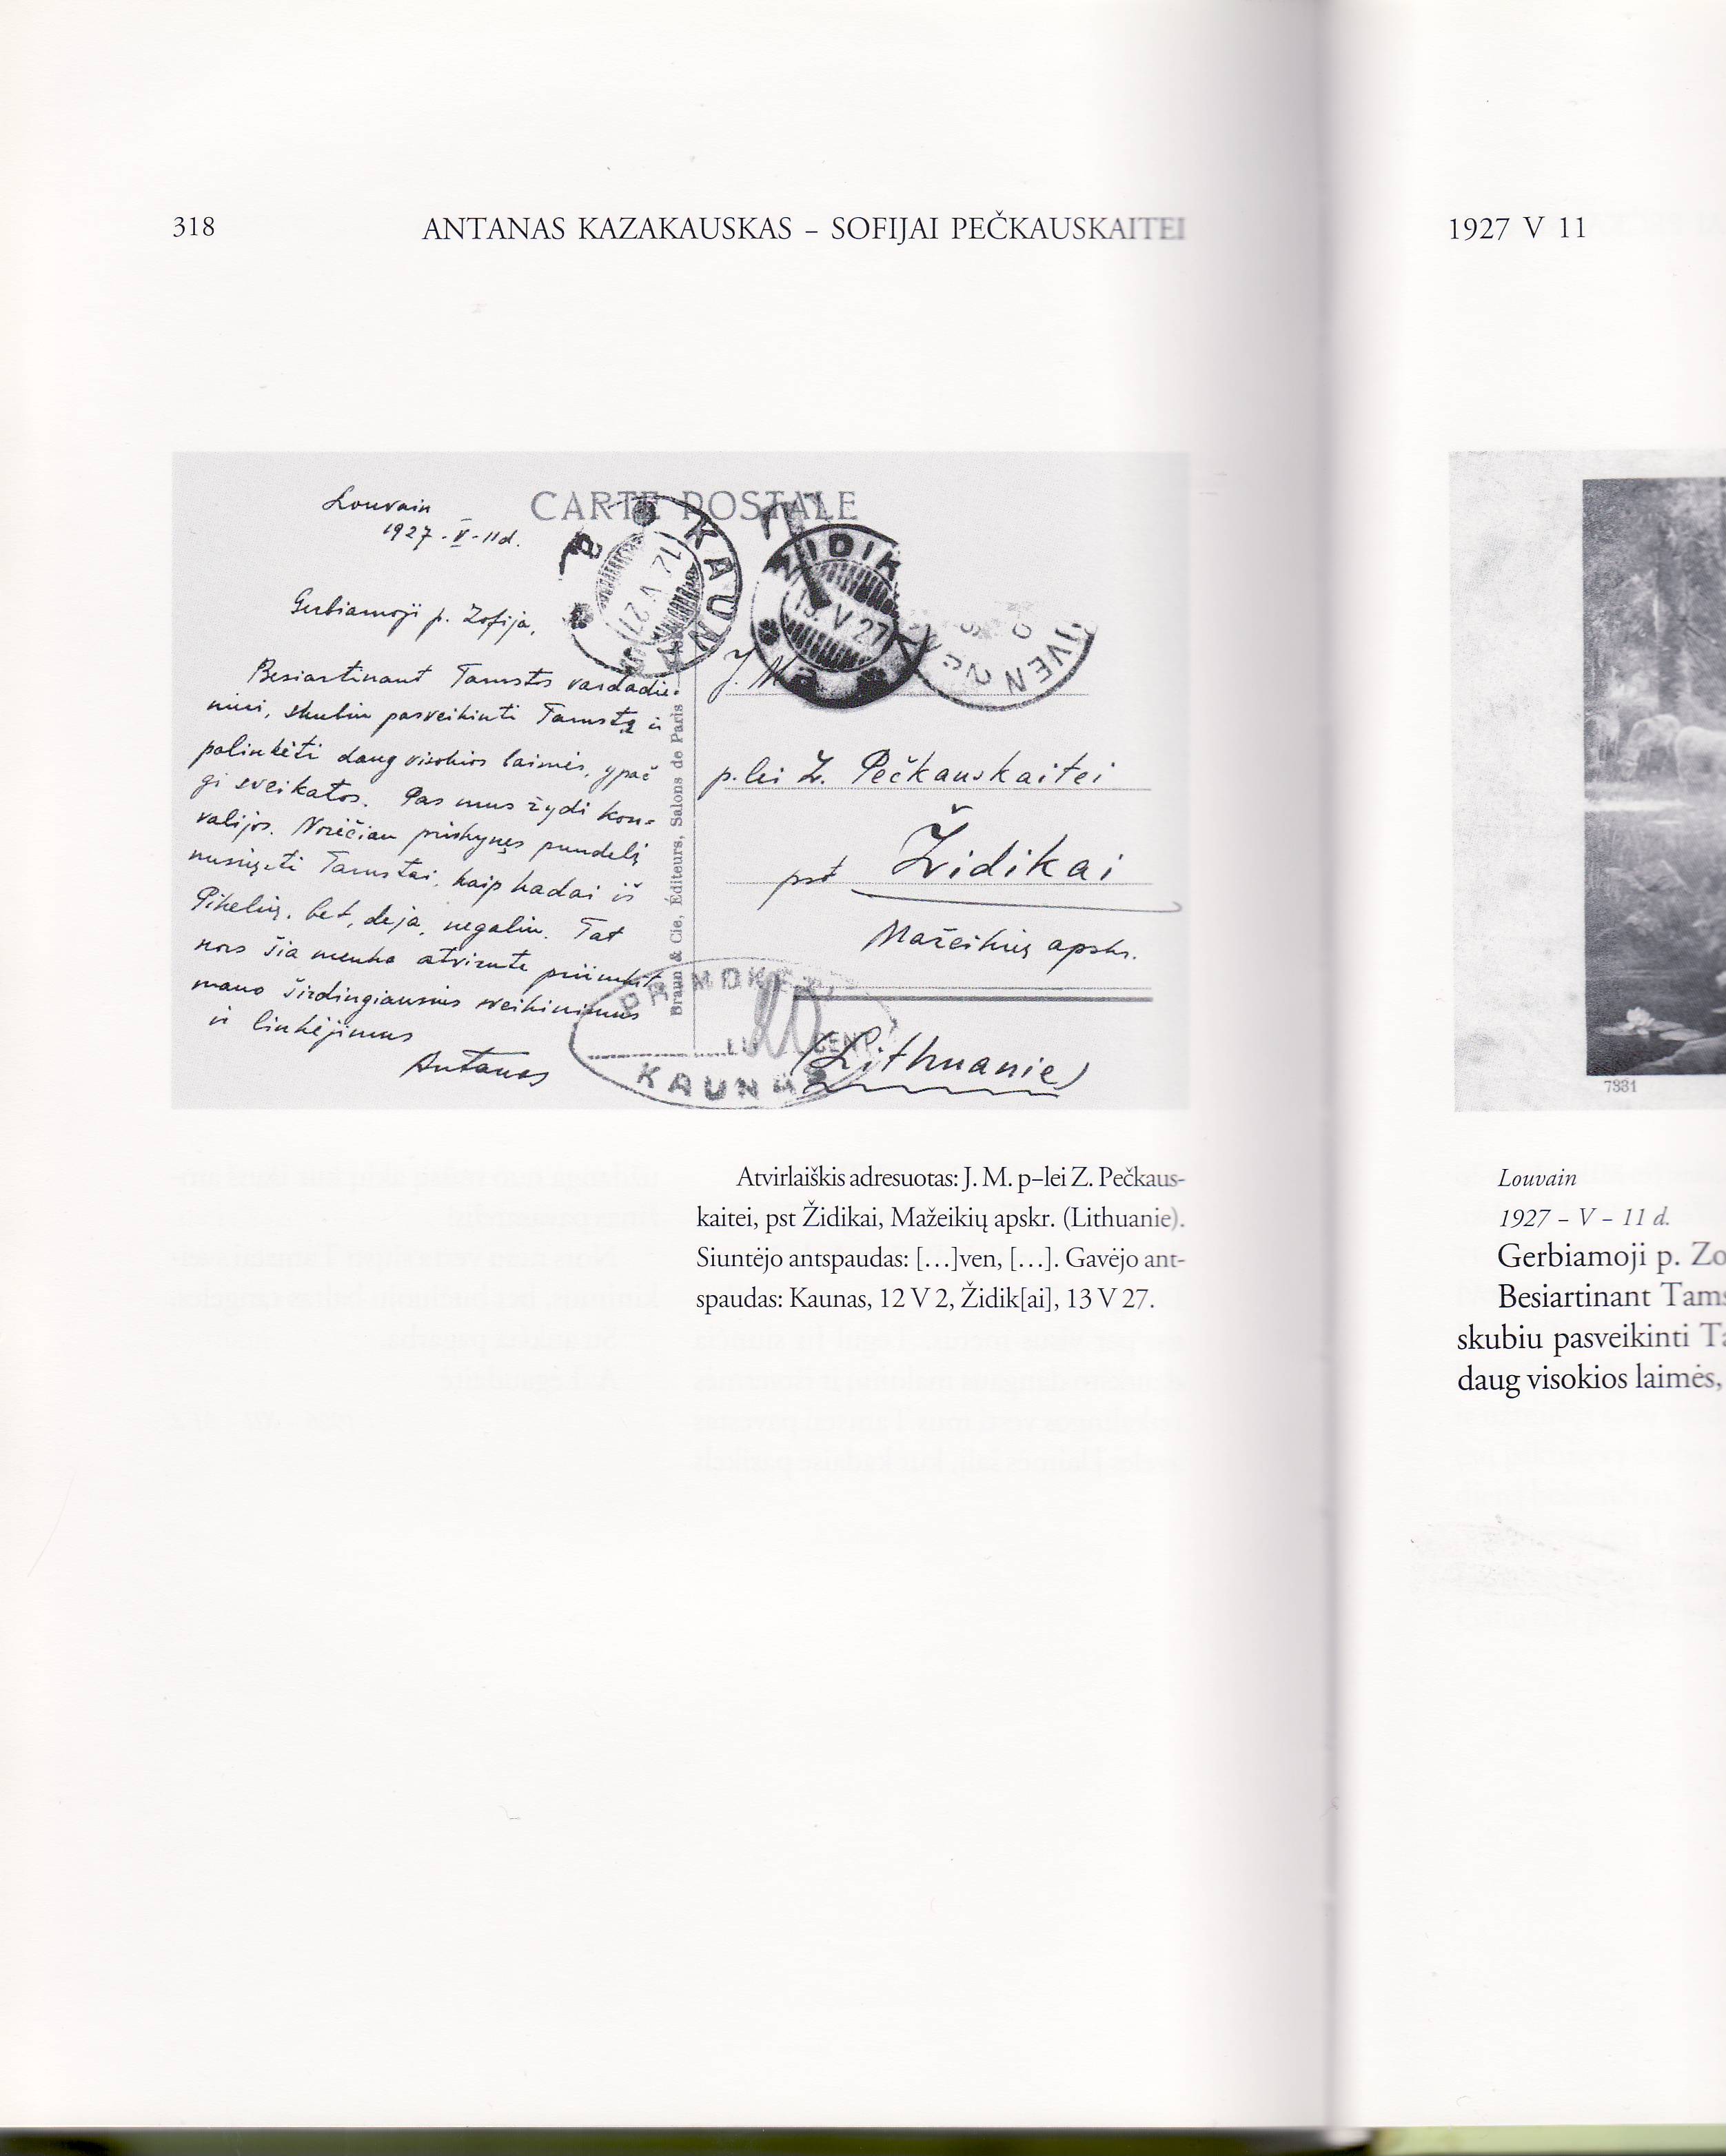 318
ANTANAS KAZAKAUSKAS – SOFIJAI PEČKAUSKAITEI
CARTE POSTALE
Louvain
1927 - V - 11 d.
Gerbiamoji p. Zofija,
Besiartinant Tamstos vardadie-
niui, skubiu pasveikinti Tamstą ir
palinkėti daug visokios laimės, ypač
gi sveikatos. Pas mus žydi kon-
valijos. Norėčiau priskynęs pundelį
nusiųsti Tamstai, kaip kadai iš
Pikelių, bet, deja, negaliu. Tat
nors šia menka atvirute priimkit
mano širdingiausius sveikinimus
ir linkėjimus
Antanas
Braun & Cie, Éditeurs, Salons de Paris
KAUNA
12 V 2
ŽIDIK
13 V 27
VEN
J. M.
p. lei Z. Pečkauskaitei
pst Židikai
Mažeikių apskr.
(Lithuanie)
PRIMOKĖTI
LIT CENT.
KAUNAS
Atvirlaiškis adresuotas: J. M. p–lei Z. Pečkaus-
kaitei, pst Židikai, Mažeikių apskr. (Lithuanie).
Siuntėjo antspaudas: […]ven, […]. Gavėjo ant-
spaudas: Kaunas, 12 V 2, Židik[ai], 13 V 27.
1927 V 11
7331
Louvain
1927 – V – 11 d.
Gerbiamoji p. Zo
Besiartinant Tams
skubiu pasveikinti Ta
daug visokios laimės,